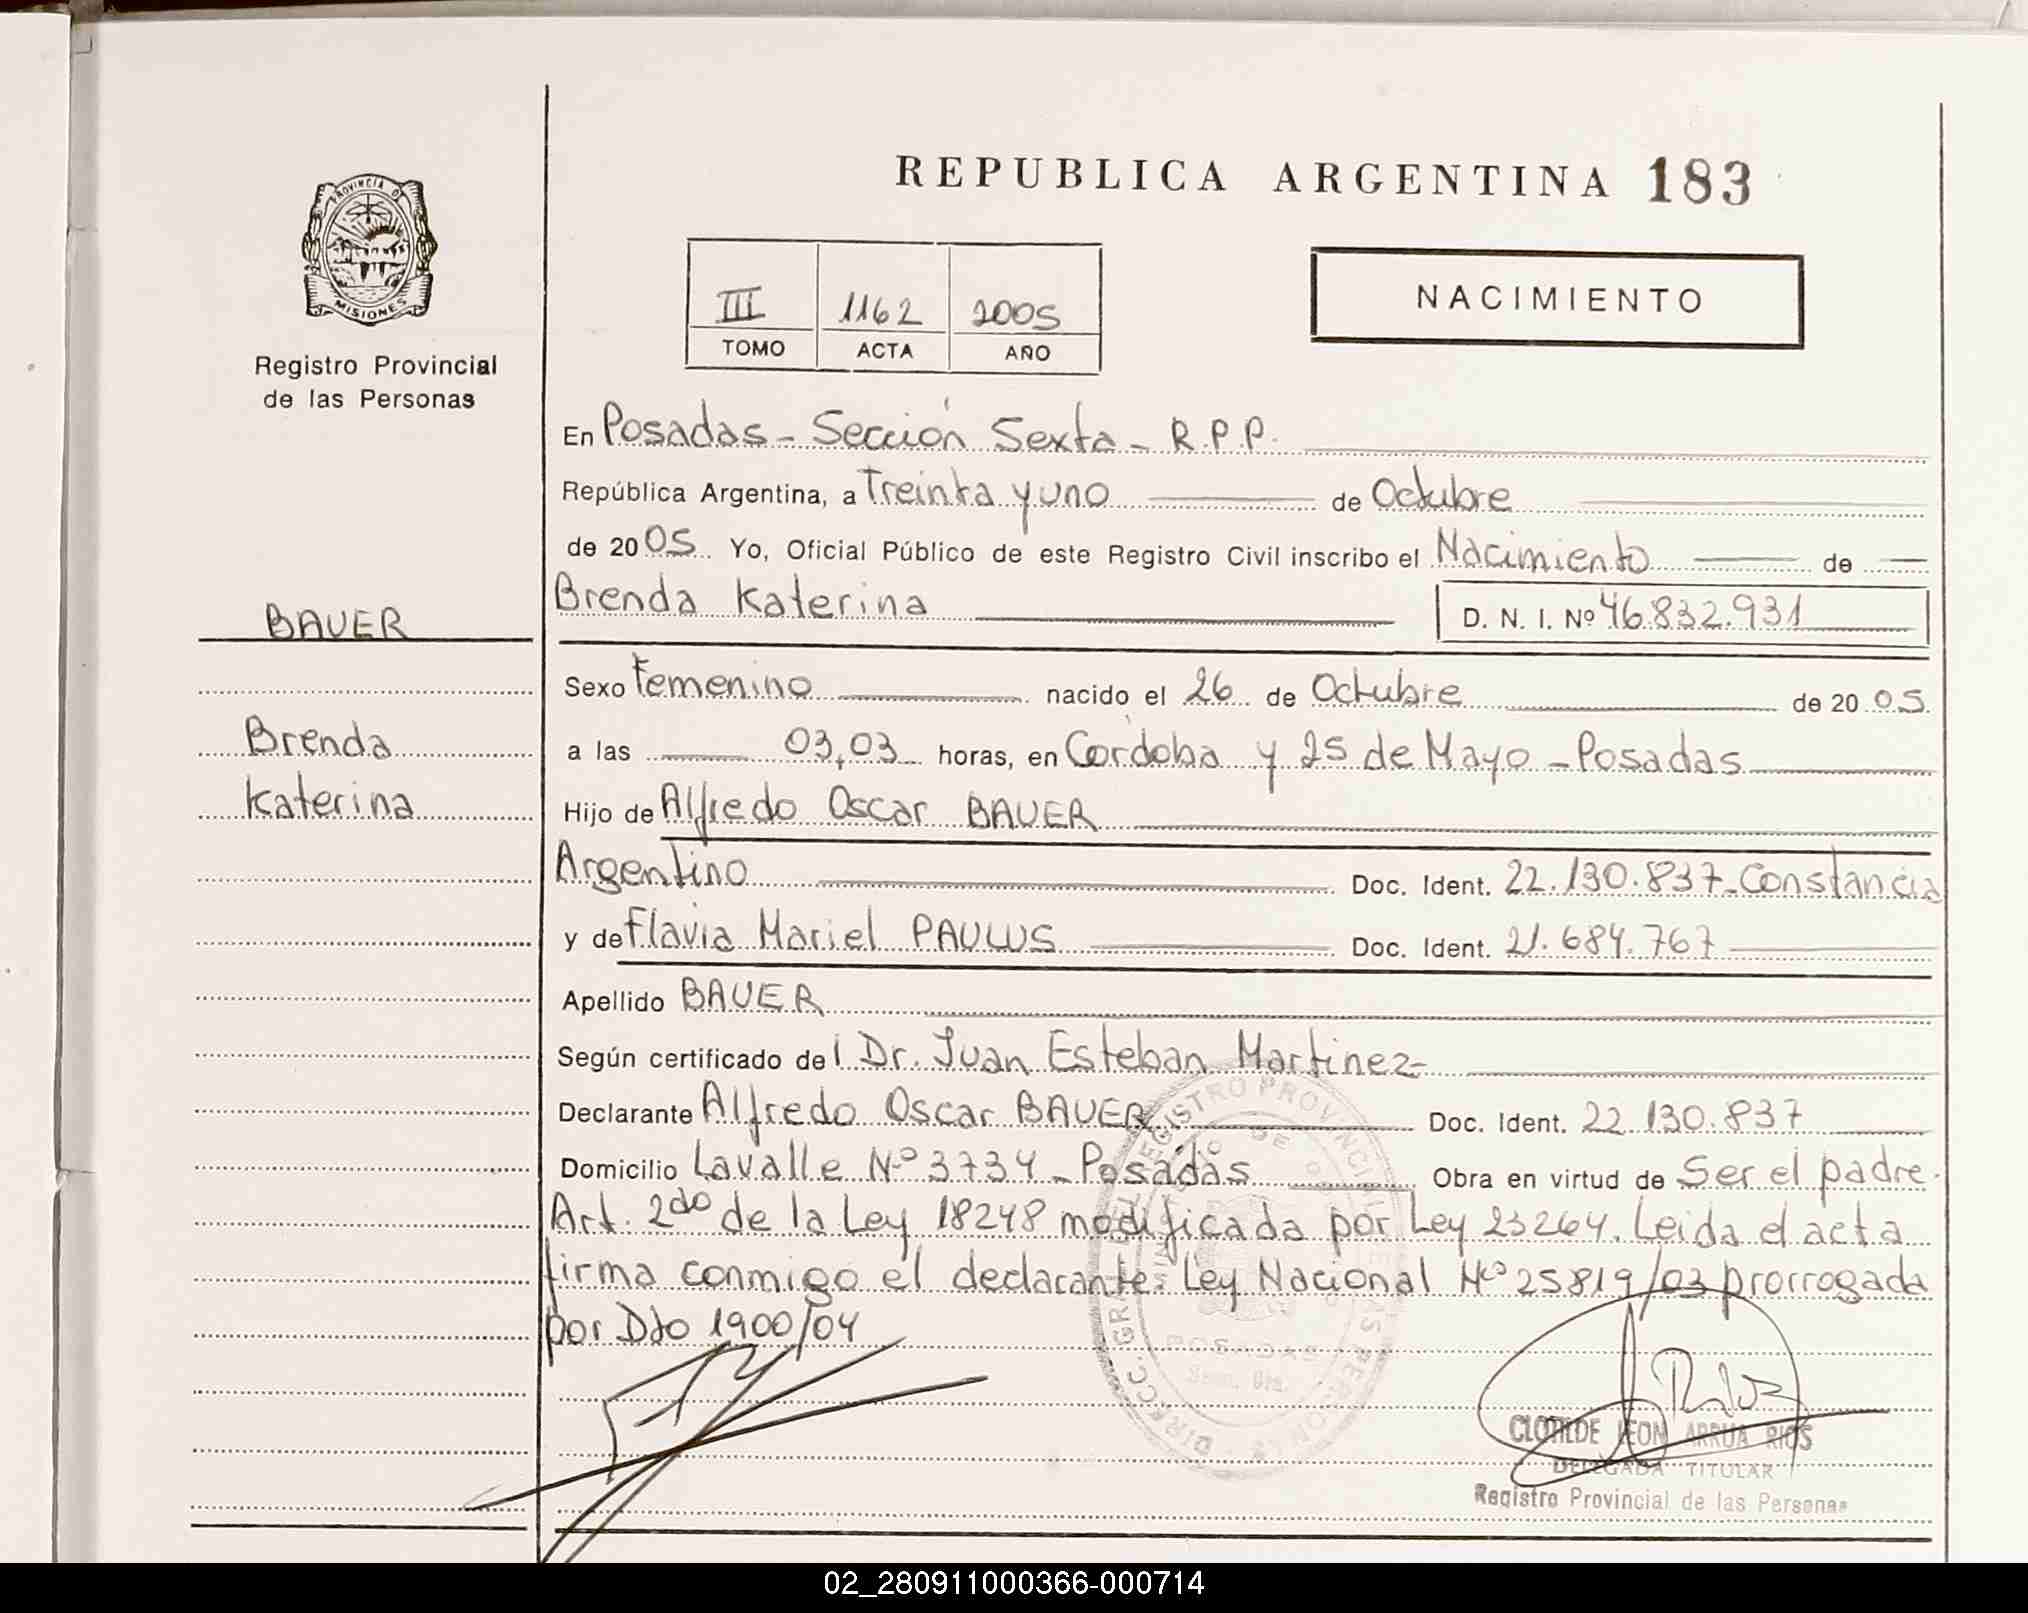 REPUBLICA ARGENTINA 183
PROVINCIA DE
MISIONES
Registro Provincial
de las Personas
III 1162 2005
TOMO ACTA AÑO
NACIMIENTO
En Posadas - Sección Sexta - R.P.P.
República Argentina, a Treinta y uno de Octubre
de 2005 Yo, Oficial Público de este Registro Civil inscribo el Nacimiento de
Brenda Katerina D. N. I. Nº 46.832.931
BAUER
Brenda
Katerina
Sexo Femenino nacido el 26 de Octubre de 2005
a las 03,03 horas, en Córdoba y 25 de Mayo - Posadas
Hijo de Alfredo Oscar BAUER
Argentino Doc. Ident. 22.130.837 - Constancia
y de Flavia Mariel PAULUS Doc. Ident. 21.684.767
Apellido BAUER
Según certificado del Dr. Juan Esteban Martinez
Declarante Alfredo Oscar BAUER Doc. Ident. 22.130.837
Domicilio Lavalle Nº 3734 - Posadas Obra en virtud de Ser el padre.
Art. 2do de la Ley 18248 modificada por Ley 23264. Leida el acta
firma conmigo el declarante. Ley Nacional Nº 25819/03 prorrogada
por Dto 1900/04
POSADAS
CLOTILDE LEON ARRUA RIOS
DELEGADA TITULAR
Registro Provincial de las Personas
02_280911000366-000714